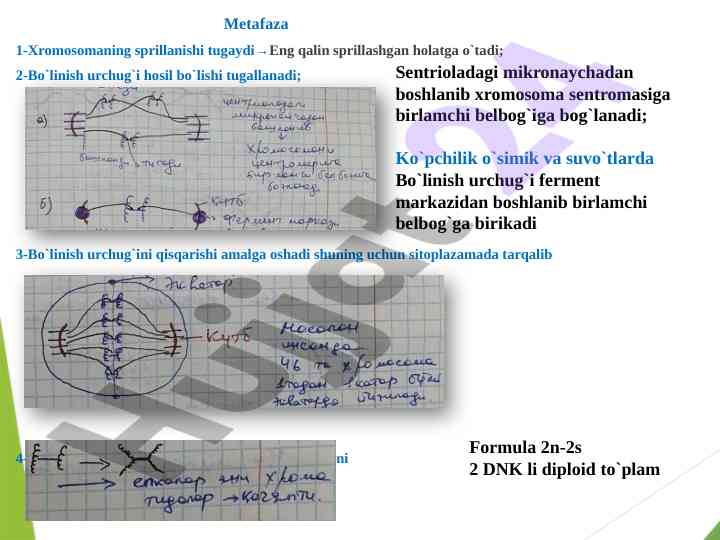 Metafaza
1-Xromosomaning sprillanishi tugaydi→Eng qalin sprillashgan holatga o`tadi;
2-Bo`linish urchug`i hosil bo`lishi tugallanadi;
Sentrioladagi mikronaychadan
boshlanib xromosoma sentromasiga
birlamchi belbog`iga bog`lanadi;
Ko`pchilik o`simik va suvo`tlarda
Bo`linish urchug`i ferment
markazidan boshlanib birlamchi
belbog`ga birikadi
а)
центриоладаги
Хромосомани
б)
Кутб
Фермент маркази
3-Bo`linish urchug`ini qisqarishi amalga oshadi shuning uchun sitoplazamada tarqalib
Экватор
Кутб
Масалан
инсонда
46 та хромосома
1тадан 1 қатор бўлиб
Экваторда
4-
ni
елкалар эни хрома
тидалар →
Formula 2n-2s
2 DNK li diploid to`plam
Hujjat 2A